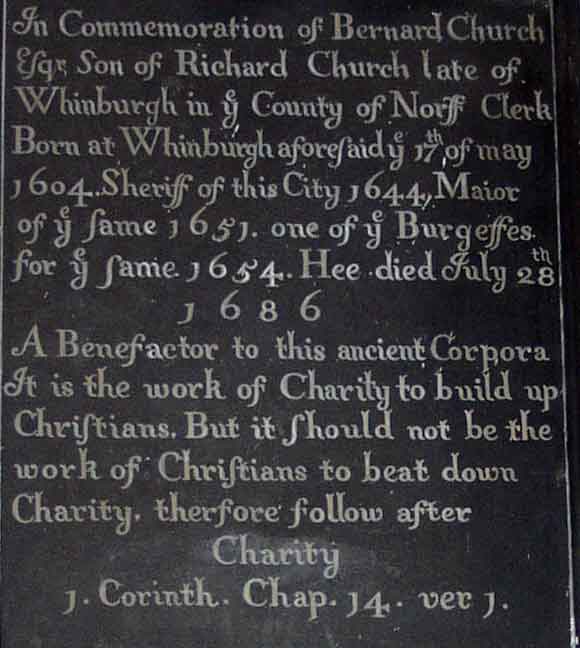 In Commemoration of Bernard Church
Esqr, Son of Richard Church late of
Whinburgh in yͤ County of Norff Clerk
Born at Whinburgh aforeſaid yͤ 17th, of may
1604. Sheriff of this City 1644, Maior
of yͤ ſame 1651. one of yͤ Burgeſſes.
for yͤ ſame. 1654. Hee died July 28th
1686
A Benefactor to this ancient Corpora
It is the work of Charity to build up
Chriſtians. But it ſhould not be the
work of Chriſtians to beat down
Charity. therfore follow after
Charity
1. Corinth. Chap. 14. ver 1.